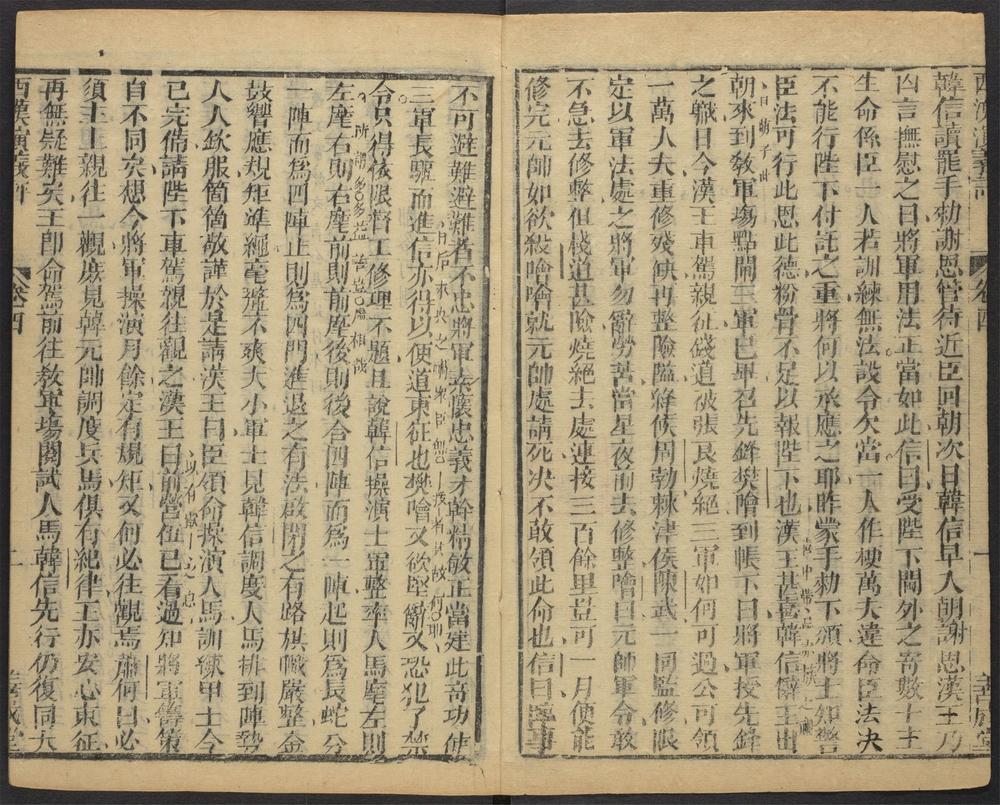 韓信讀罷手勑謝恩管待近臣回朝次日韓信早入朝謝恩漢王乃
以言撫慰之曰將軍用法正當如此信曰受陛下閫外之寄數十主
生命係臣一人若訓練無法設令欠當一人作梗萬夫違命臣法决
不能行陛下付託之重將何以承應之耶昨蒙手勑下頒將士知警
臣法可行此恩此德粉骨不足以報陛下也漢王甚喜韓信辭王出
朝來到敎軍塲點閘三軍已畢召先鋒樊噲到帳下曰將軍授先鋒
之職目今漢王車駕親征棧道被張良燒絕三軍如何可過公可領
一萬人夫重修殘缺再整險隘絳侯周勃棘津侯陳武一同監修限
定以軍法處之將軍勿辭勞苦當星夜前去修整噲曰元帥軍令敢
不急去修整但棧道甚險燒絕去處連接三百餘里豈可一月便能
修完元帥如欲殺噲噲就元帥處請死决不敢領此命也信曰臨事
不可避難避難者不忠將軍素懷忠義才幹精敏正當建此奇功使
三軍長驅而進信亦得以便道東征也樊噲又欲堅辭又恐犯了禁
令只得依限督工修理不題且說韓信操演士軍整率人馬麾左則
左麾右則右麾前則前麾後則後合四陣而爲一陣起則爲長蛇分
一陣而爲四陣止則爲四門進退之有法啟閉之有路旗幟嚴整金
鼓響應規矩準繩毫釐不爽大小軍士見韓信調度人馬排列陣勢
人人欽服箇箇敬謹於是請漢王曰臣領命操演人馬訓練甲士今
已完備請陛下車駕親往觀之漢王曰前營伍已看過知將軍籌策
自不同矣想今將軍操演月餘定有規矩又何必往觀焉蕭何曰必
須主上親往一觀庶見韓元帥調度兵馬俱有紀律王亦安心東征
再無疑難矣王卽命駕前往敎軍塲閱試人馬韓信先行仍復同大
西漢演義評 卷四